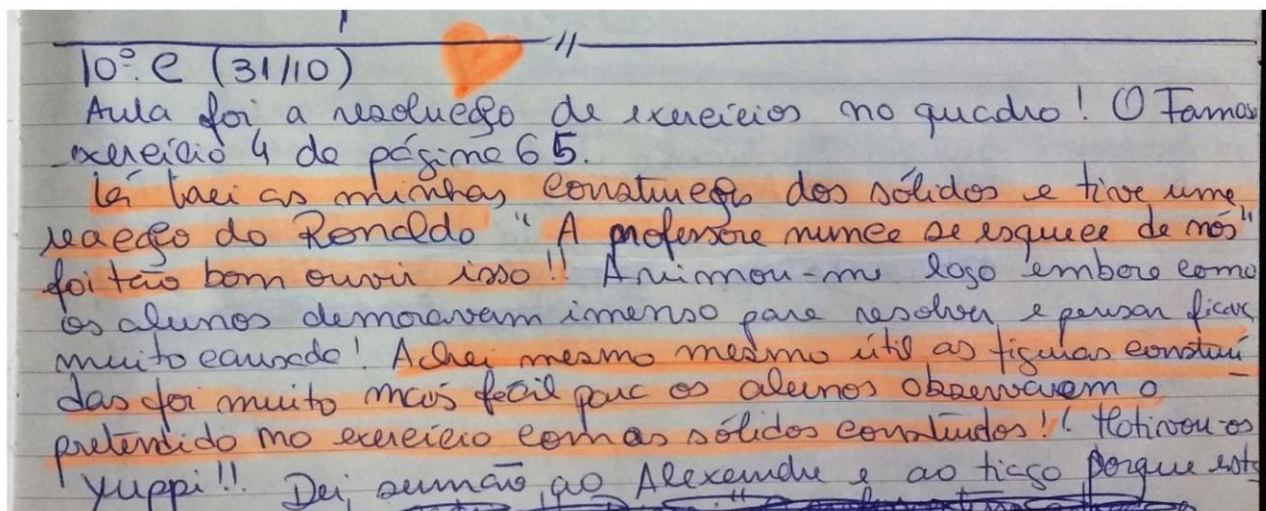 10º. e (31/10)
Aula foi a resolução de exercícios no quadro! O Famos
exercício 4 da página 65.
Lá levei as minhas construção dos sólidos e tive uma
reacção do Ronaldo "A professora nunca se esquece de nós"
foi tão bom ouvir isso!! Animou-me logo embora como
os alunos demoravam imenso para resolver e pensar ficava
muito cansada! Achei mesmo mesmo útil as figuras construí
das foi muito mais fácil para os alunos observarem o
pretendido no exercício com os sólidos construídos!! Motivou-os
yuppi!!. Dei sermão ao Alexandre e ao Tiago porque